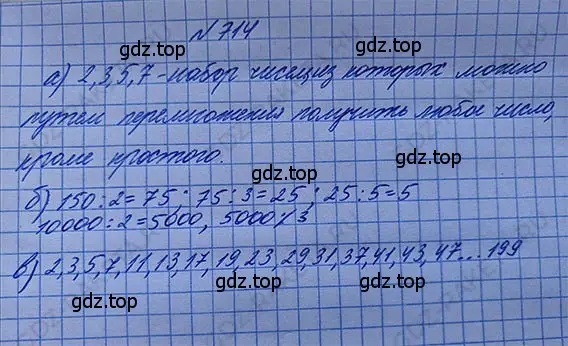 №714
а) 2,3,5,7-набор чисел, из которых можно
путем перемножения получить любое число,
кроме простого.
б) 150:2=75; 75:3=25; 25:5=5
10000:2=5000, 5000⁒3
в) 2,3,5,7,11,13,17,19,23,29,31,37,41,43,47...199
gdz.top
gdz.top
gdz.top
gdz.top
gdz.top
gdz.top
gdz.top
gdz.top